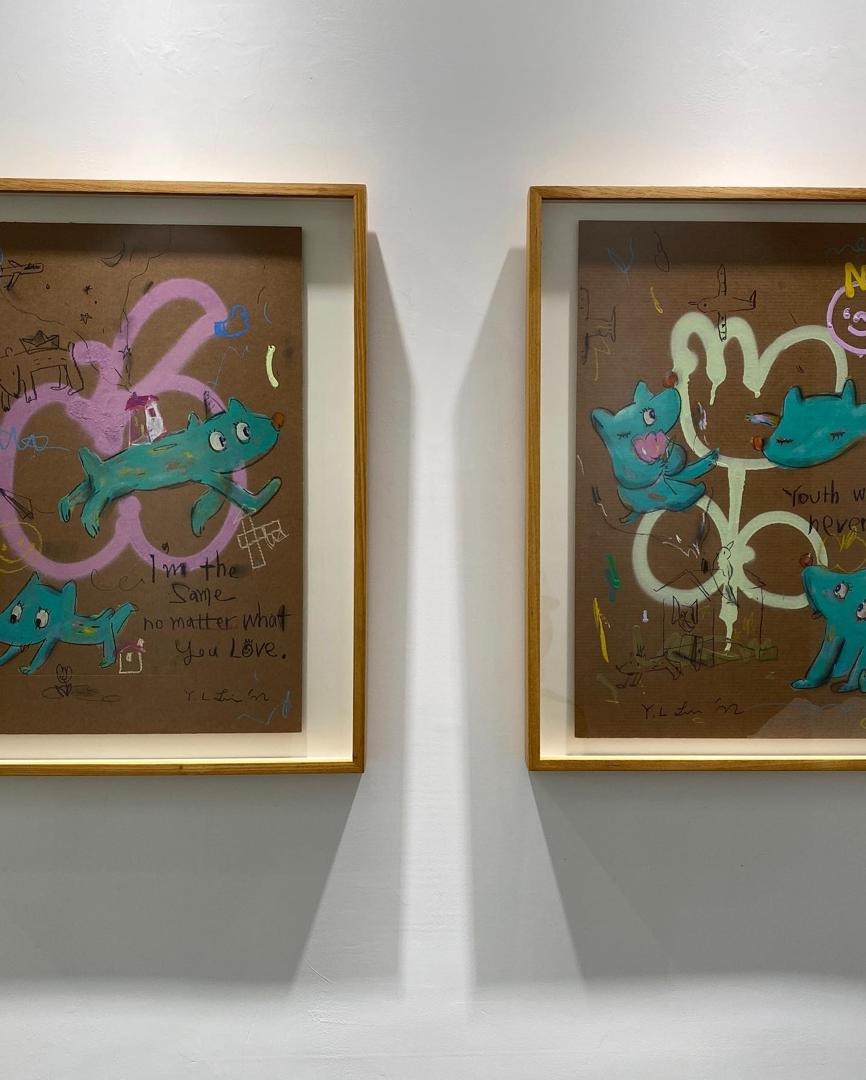 I'm the
Same
no matter what
You Love.
Y. L Lin '22
Youth w
never
Y. L Lin '22